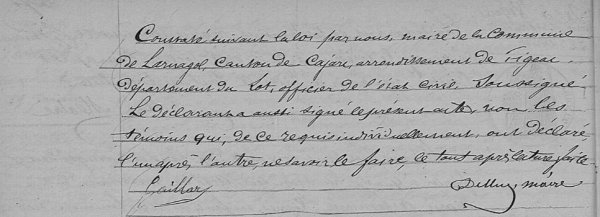 Constaté suivant la loi par nous, maire de la Commune
de Larnagol, canton de Cajarc, arrondissement de Figeac
département du Lot, officier de l'état civil, soussigné
Le déclarant a aussi signé le présent acte, non les
témoins qui, de ce requis individuellement, ont déclaré
l'un après l'autre, ne savoir le faire, le tout après lecture faite
maire